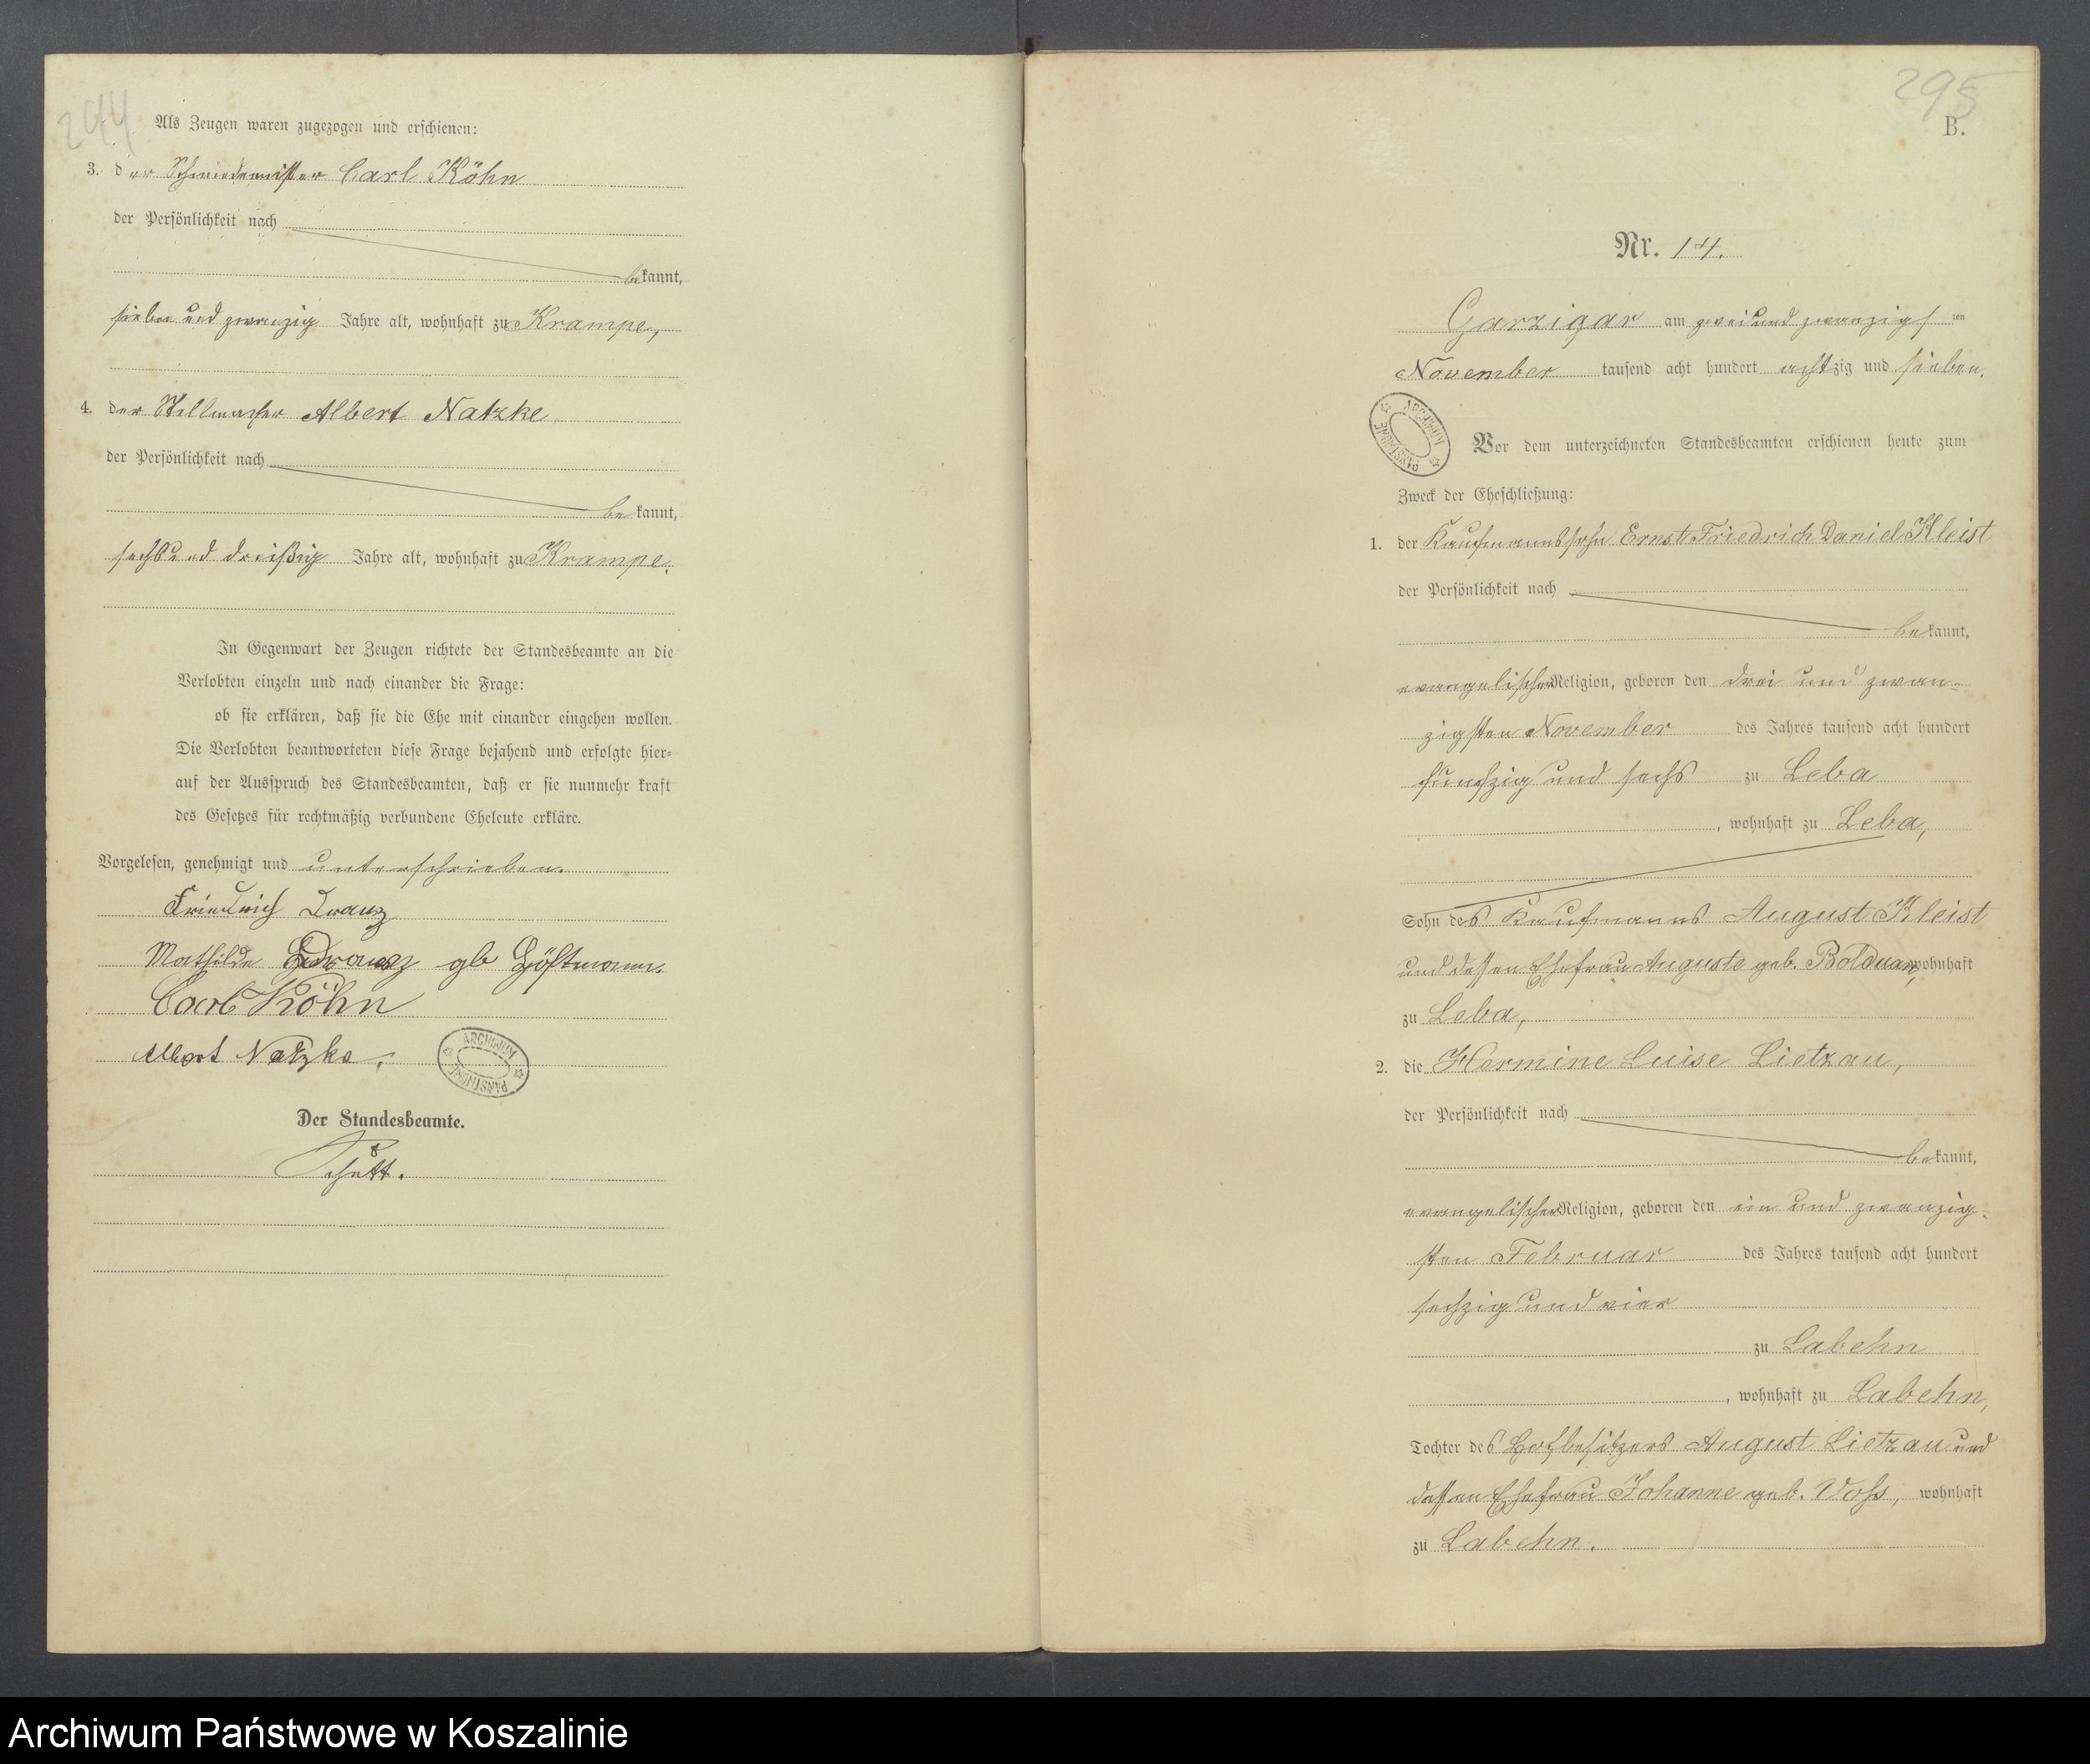 244
Als Zeugen waren zugezogen und erschienen:
3. der Schmiedemeister Carl Köhn
der Persönlichkeit nach
bekannt,
sieben und zwanzig Jahre alt, wohnhaft zu Krampe,
4. der Stellmacher Albert Natzke
der Persönlichkeit nach
bekannt,
sechsund dreißig Jahre alt, wohnhaft zu Krampe.
In Gegenwart der Zeugen richtete der Standesbeamte an die
Verlobten einzeln und nach einander die Frage:
ob sie erklären, daß sie die Ehe mit einander eingehen wollen.
Die Verlobten beantworteten diese Frage bejahend und erfolgte hier-
auf der Ausspruch des Standesbeamten, daß er sie nunmehr kraft
des Gesetzes für rechtmäßig verbundene Eheleute erkläre.
Vorgelesen, genehmigt und unterschrieben.
Friedrich
Mathilde gb
Carl Köhn
Albert Natzke.
ARCHIWUM PAŃSTWOWE
Der Standesbeamte.
295
B.
Nr. 14.
Garzigar am zweiund zwanzigsten
November tausend acht hundert achtzig und sieben.
ARCHIWUM PAŃSTWOWE
Vor dem unterzeichneten Standesbeamten erschienen heute zum
Zweck der Eheschließung:
1. der Kaufmannssohn Ernst Friedrich Daniel Kleist
der Persönlichkeit nach
bekannt,
evangelischer Religion, geboren den drei und zwan-
zigsten November des Jahres tausend acht hundert
fünfzig und sechs zu Leba
, wohnhaft zu Leba,
Sohn des Kaufmanns August Kleist
und dessen Ehefrau Auguste geb. Bolduan, wohnhaft
zu Leba,
2. die Hermine Luise Lietzau,
der Persönlichkeit nach
bekannt,
evangelischer Religion, geboren den ein und zwanzig-
sten Februar des Jahres tausend acht hundert
sechzig und vier
zu Labehn
, wohnhaft zu Labehn,
Tochter des Hofbesitzers August Lietzau und
dessen Ehefrau Johanne geb. Voß, wohnhaft
zu Labehn.
Archiwum Państwowe w Koszalinie